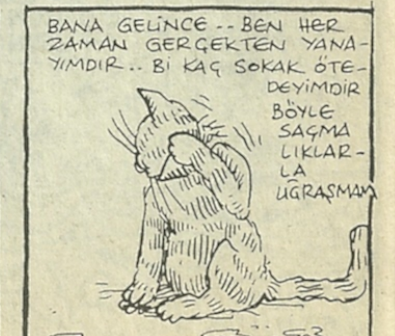 BANA GELİNCE -- BEN HER
ZAMAN GERÇEKTEN YANA-
YIMDIR.. Bİ KAÇ SOKAK ÖTE-
DEYİMDİR
BÖYLE
SAÇMA
LIKLAR-
LA
UĞRAŞMAM